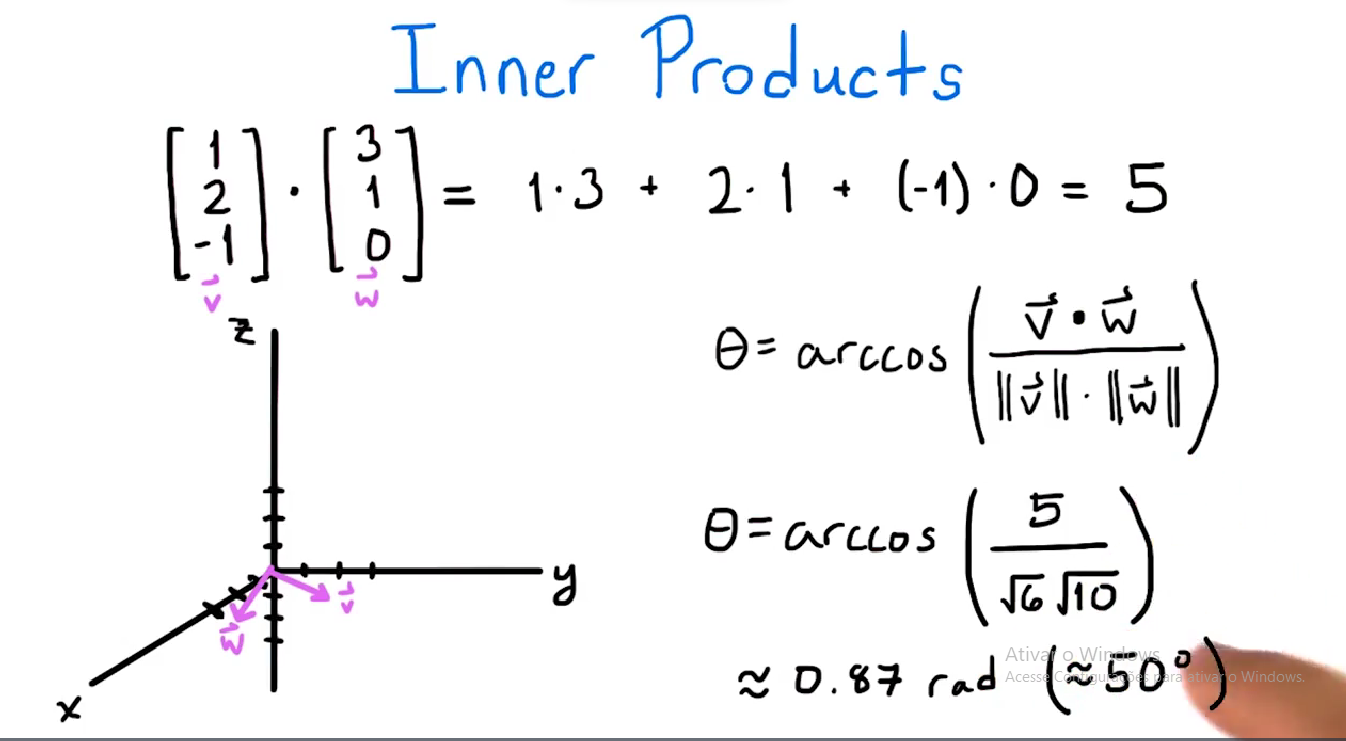 Inner Products
[1 2 -1] · [3 1 0] = 1·3 + 2·1 + (-1)·0 = 5
v⃗ w⃗
z
θ = arccos ( v⃗ · w⃗ / ‖v⃗‖ · ‖w⃗‖ )
θ = arccos ( 5 / √6 √10 )
y
v⃗
w⃗
≈ 0.87 rad (≈50°)
x
Ativar o Windows
Acesse Configurações para ativar o Windows.